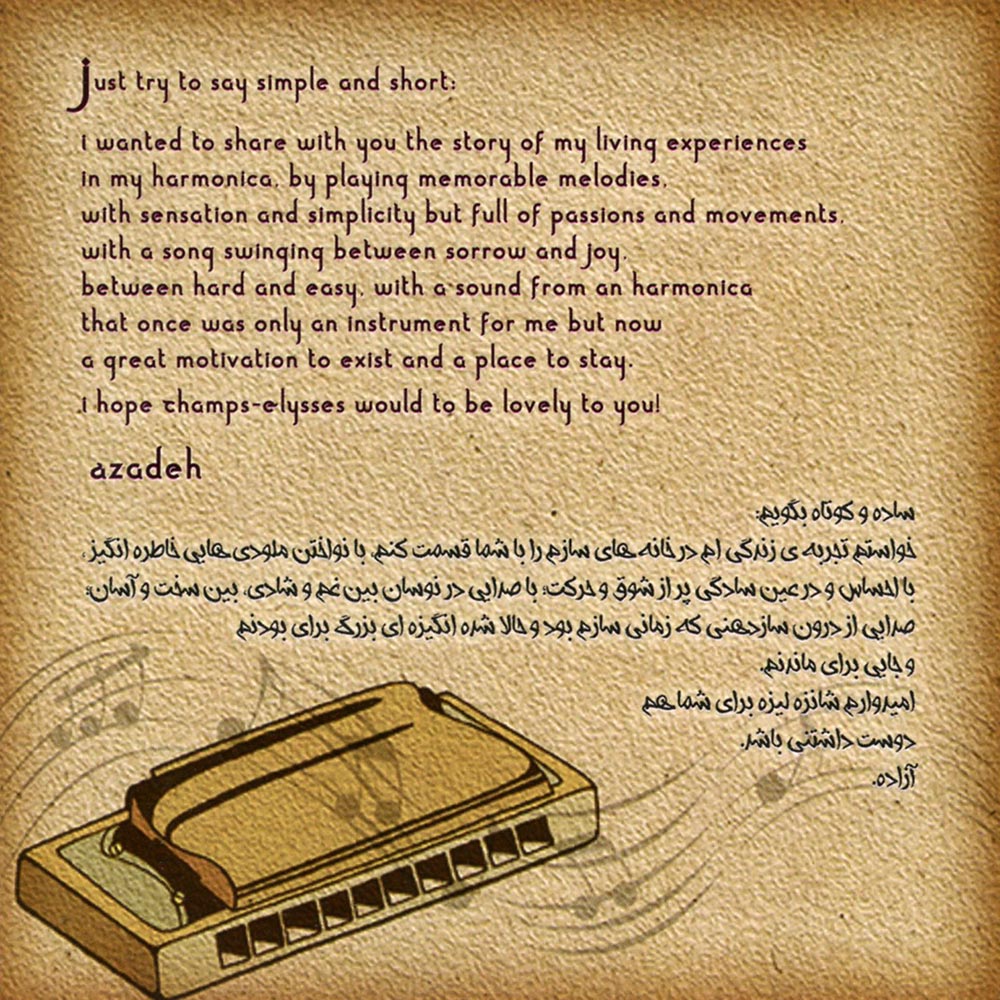 Just try to say simple and short:
i wanted to share with you the story of my living experiences
in my harmonica, by playing memorable melodies,
with sensation and simplicity but full of passions and movements,
with a song swinging between sorrow and joy,
between hard and easy, with a sound from an harmonica
that once was only an instrument for me but now
a great motivation to exist and a place to stay.
i hope champs-elysses would to be lovely to you!
azadeh
ساده و کوتاه بگویم:
خواستم تجربه ی زندگی ام در خانه های سازم را با شما قسمت کنم، با نواختن ملودی هایی خاطره انگیز،
با احساس و در عین سادگی پر از شوق و حرکت؛ با صدایی در نوسان بین غم و شادی، بین سخت و آسان؛
صدایی از درون سازدهنی که زمانی سازم بود و حالا شده انگیزه ای بزرگ برای بودنم
و جایی برای ماندنم.
امیدوارم شانزه لیزه برای شما هم
دوست داشتنی باشد.
آزاده.